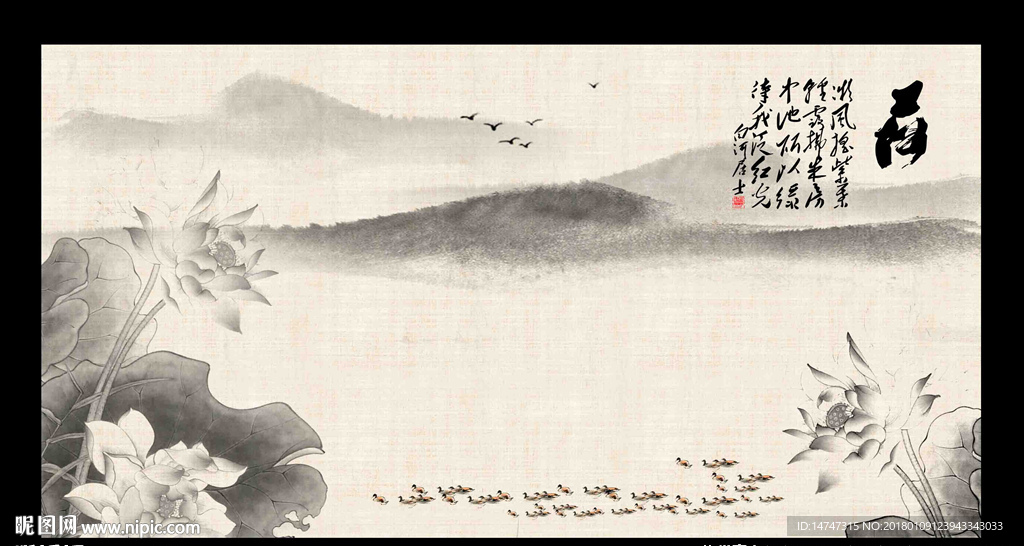 荷
微風搖紫葉
輕露拂朱房
中池所以綠
待我泛紅光
河居士
昵图网 www.nipic.com
ID:14747315 NO:20180109123943343033